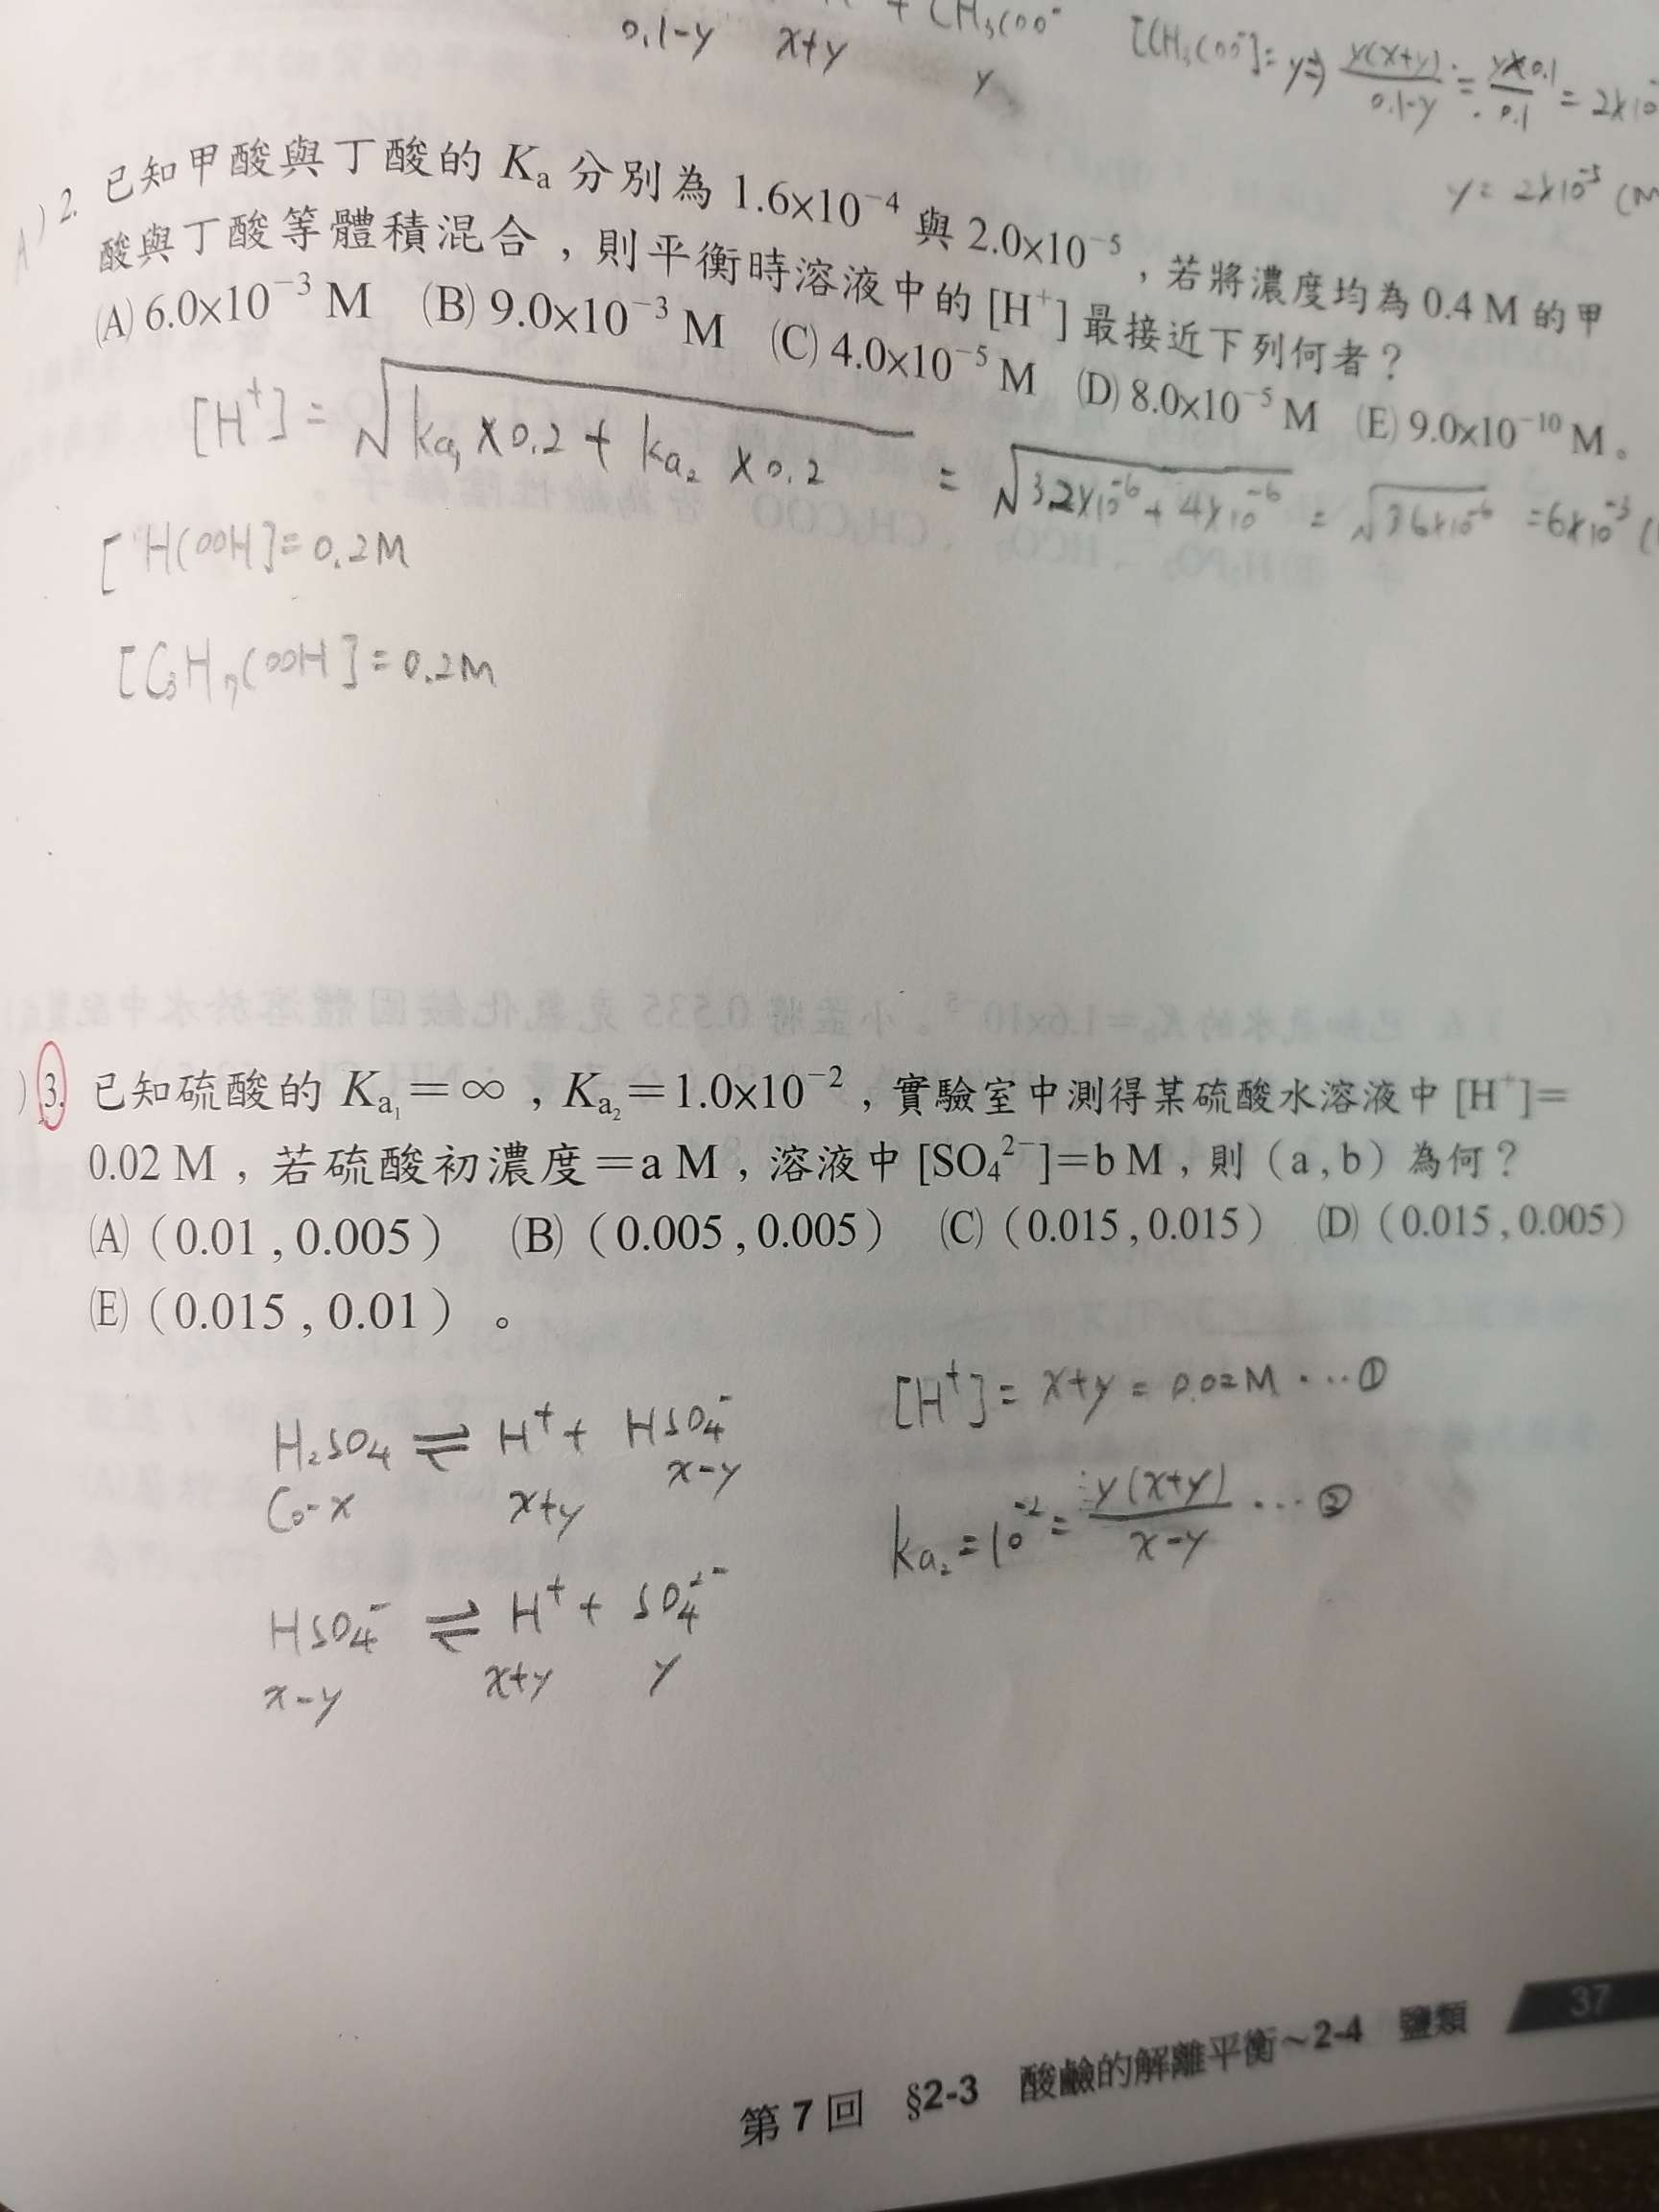 0.1-y x+y y
+ CH₃COO⁻ [CH₃COO⁻]=y⇒ y(x+y)/0.1-y ≒ y×0.1/0.1 = 2×10
y = 2×10⁻⁵ (M
A ) 2. 已知甲酸與丁酸的 Kₐ 分別為 1.6×10⁻⁴ 與 2.0×10⁻⁵,若將濃度均為 0.4 M 的甲
酸與丁酸等體積混合,則平衡時溶液中的 [H⁺] 最接近下列何者?
(A) 6.0×10⁻³ M (B) 9.0×10⁻³ M (C) 4.0×10⁻⁵ M (D) 8.0×10⁻⁵ M (E) 9.0×10⁻¹⁰ M。
[H⁺] = √(ka₁ × 0.2 + ka₂ × 0.2) = √(32×10⁻⁶ + 4×10⁻⁶) = √(36×10⁻⁶) = 6×10⁻³ (
[HCOOH] = 0.2M
[C₃H₇COOH] = 0.2M
) 3. 已知硫酸的 Kₐ₁=∞,Kₐ₂=1.0×10⁻²,實驗室中測得某硫酸水溶液中 [H⁺]=
0.02 M,若硫酸初濃度=a M,溶液中 [SO₄²⁻]=b M,則(a , b)為何?
(A)(0.01 , 0.005) (B)(0.005 , 0.005) (C)(0.015 , 0.015) (D)(0.015 , 0.005)
(E)(0.015 , 0.01)。
[H⁺] = x+y = 0.02M …①
H₂SO₄ ⇌ H⁺ + HSO₄⁻
C₀-x x+y x-y
ka₂ = 10⁻² = y(x+y)/x-y …②
HSO₄⁻ ⇌ H⁺ + SO₄²⁻
x-y x+y y
第 7 回 §2-3 酸鹼的解離平衡~2-4 鹽類 37